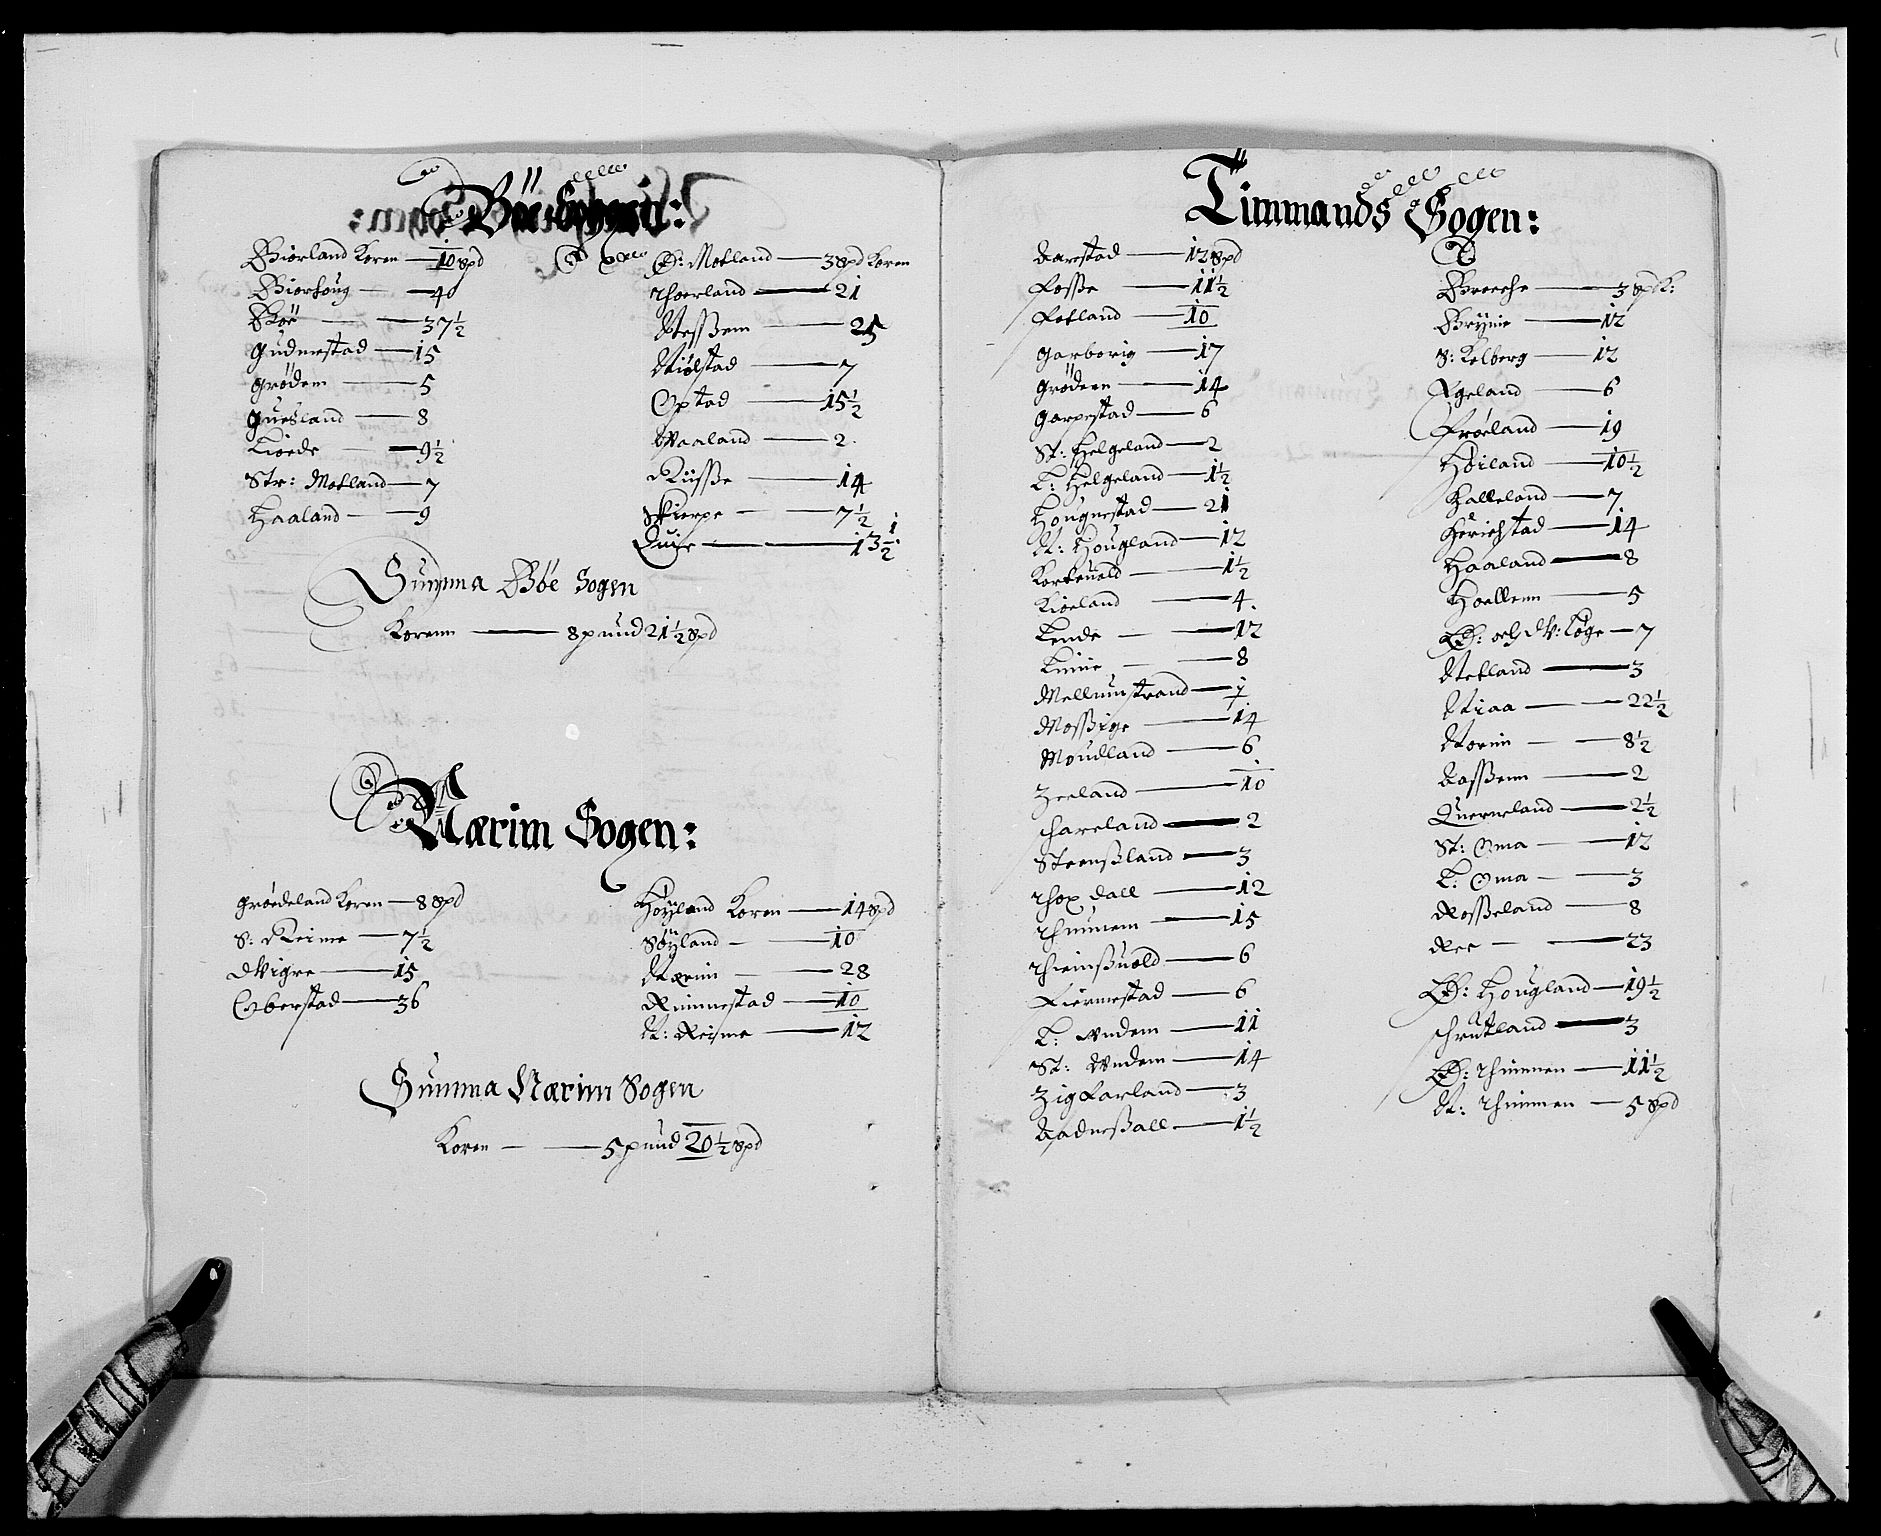 Böe Sogen:
Biorland Koren — 10 spd
Biorhoug — 4
Böe — 37½
Gudmestad — 15
Grödem — 5
Guesland — 8
Lioede — 9½
Str: Motland — 7
Haaland — 9
Ø: Motland — 3 spd Koren
Thoerland — 21
Nessem — 25
Niølstad — 7
Optad — 15½
Waaland — 2
Riisse — 14
Skierpe — 7½
Duue — 13½
Summa Böe Sogen
Korenn — 8 pund 21½ spd
Nærim Sogen:
Grödeland Koren — 8 spd
S: Reime — 7½
Wigre — 15
Oberstad — 36
Höyland Koren — 14 spd
Söyland — 10
Nærim — 28
Rimmestad — 10
N: Reime — 12
Summa Nærim Sogen
Koren — 5 pund 20½ spd
Timmands Sogen:
Aarestad — 12 spd
Fosse — 11½
Fotland — 10
Garborig — 17
Grödem — 14
Garpestad — 6
St: Helgeland — 2
L: Helgeland — 1½
Hougnestad — 21
N: Hougland — 12
Korteuold — 1½
Kioeland — 4
Lende — 12
Linie — 8
Mellumstrand — 1
Mossige — 14
Moudland — 6
Zeeland — 10
Chareland — 2
Steensland — 3
Thoxdall — 12
Thimmem — 15
Thiemsuold — 6
Fiermestad — 6
L: Vndem — 11
St: Vndem — 14
Zigfarland — 3
Aadnesall — 1½
Breeche — 3 spd K:
Bryne — 12
S: Kolberg — 12
Egeland — 6
Fröeland — 19
Høiland — 10½
Halleland — 7
Herichstad — 14
Haaland — 8
Hoellenn — 5
Ø: och W: Løge — 7
Netland — 3
Niaa — 22½
Norim — 8½
Aassenn — 2
Querneland — 2½
St: Oma — 12
L: Oma — 3
Rosseland — 8
Ree — 23
Ø: Hougland — 19½
Chrutland — 3
Ø: Thimmen — 11½
N: Thimmen — 5 spd